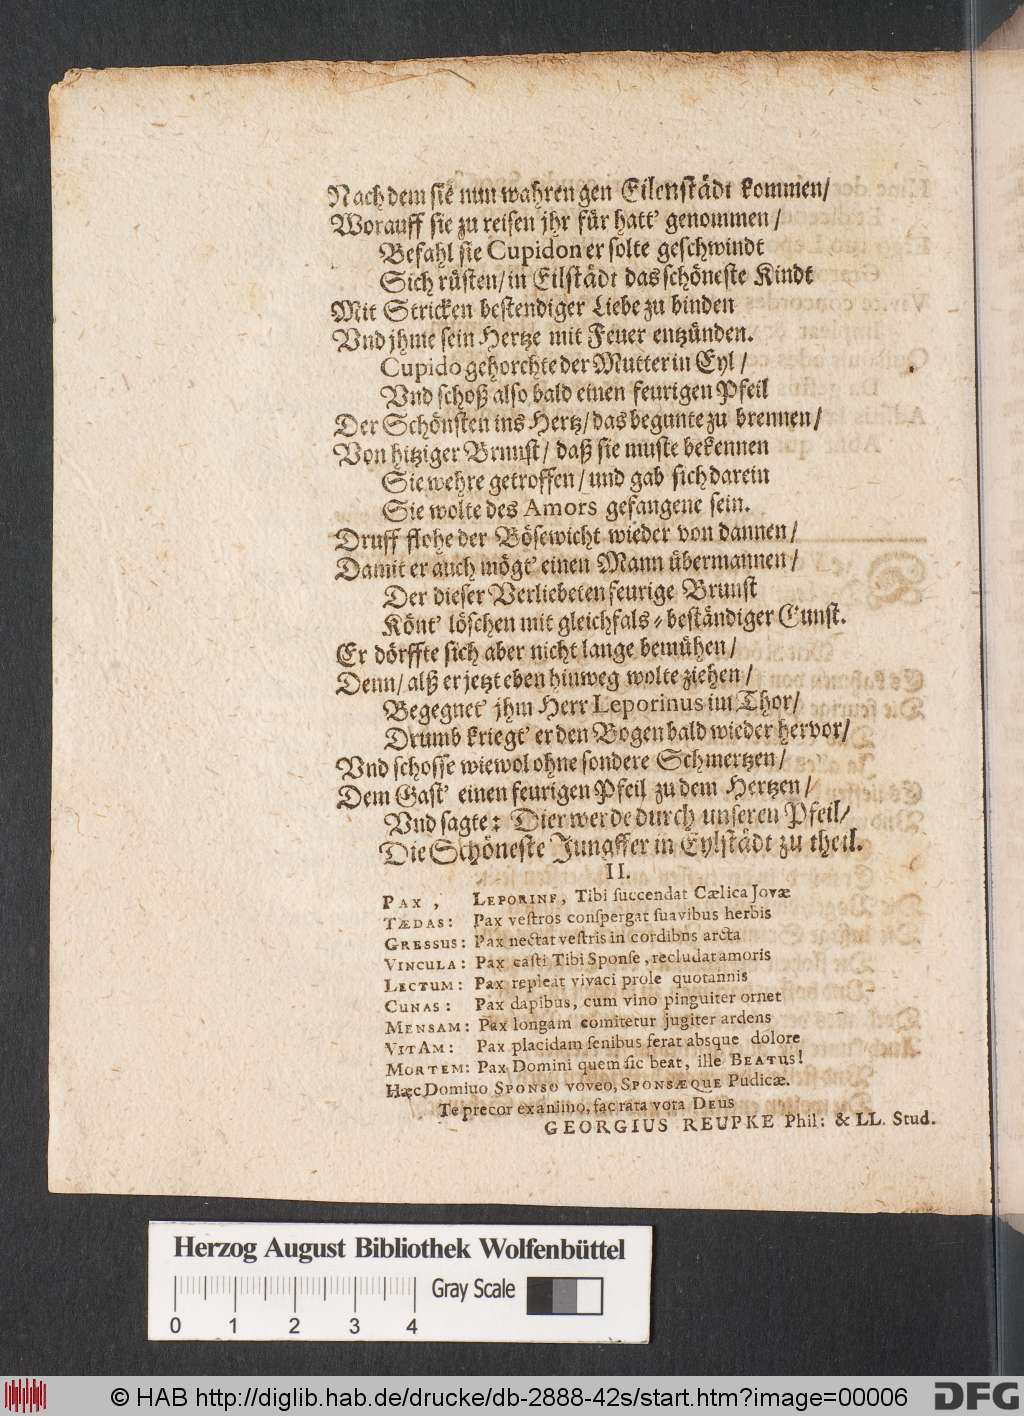 Nach dem sie nun wahren gen Eilenstädt kommen/
Worauff sie zu reisen jhr für hatt' genommen/
Befahl sie Cupidon er solte geschwindt
Sich rüsten/ in Eilstädt das schöneste Kindt
Mit Stricken bestendiger Liebe zu binden
Vnd jhme sein Hertze mit Feuer entzünden.
Cupido gehorchte der Mutter in Eyl/
Vnd schoß also bald einen feurigen Pfeil
Der Schönsten ins Hertz/ das begunte zu brennen/
Von hitziger Brunst/ daß sie muste bekennen
Sie wehre getroffen/ und gab sich darein
Sie wolte des Amors gefangene sein.
Druff flohe der Bösewicht wieder von dannen/
Damit er auch mögt' einen Mann übermannen/
Der dieser Verliebeten feurige Brunst
Könt' löschen mit gleichfals-beständiger Gunst.
Er dörffte sich aber nicht lange bemühen/
Denn/ alß er jetzt eben hinweg wolte ziehen/
Begegnet' jhm Herr Leporinus im Thor/
Drumb kriegt' er den Bogen bald wieder hervor/
Vnd schosse wiewol ohne sondere Schmertzen/
Dem Gast' einen feurigen Pfeil zu dem Hertzen/
Vnd sagte: Dier werde durch unseren Pfeil/
Die Schöneste Jungffer in Eylstädt zu theil.
II.
PAX, LEPORINE, Tibi succendat Cælica Jovæ
TÆDAS: Pax vestros conspergat suavibus herbis
GRESSUS: Pax nectat vestris in cordibns arcta
VINCULA: Pax casti Tibi Sponse, recludat amoris
LECTUM: Pax repleat vivaci prole quotannis
CUNAS: Pax dapibus, cum vino pinguiter ornet
MENSAM: Pax longam comitetur jugiter ardens
VITAM: Pax placidam senibus ferat absque dolore
MORTEM: Pax Domini quem sic beat, ille BEATUS!
Hæc Domiuo SPONSO voveo, SPONSÆQUE Pudicæ.
Te precor exanimo, fac rata vota DEUS
GEORGIUS REUPKE Phil: & LL. Stud.
Herzog August Bibliothek Wolfenbüttel
Gray Scale
0 1 2 3 4
© HAB http://diglib.hab.de/drucke/db-2888-42s/start.htm?image=00006
DFG